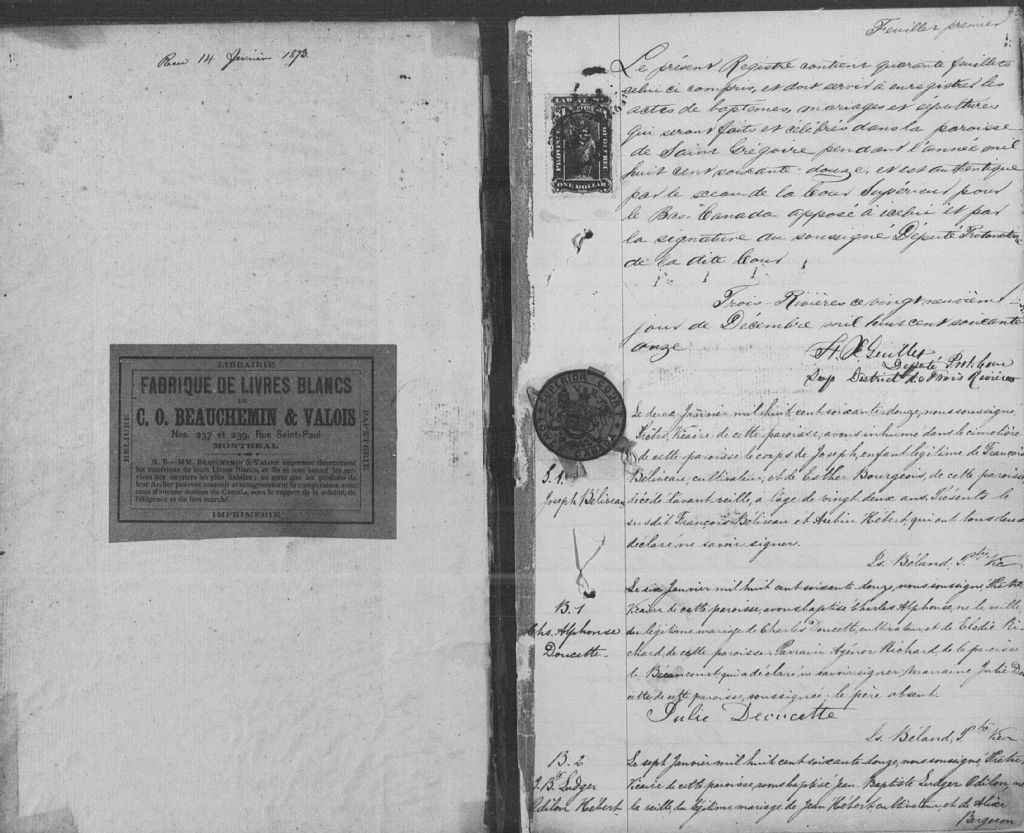 Recu 14 février 1873.
LIBRAIRIE
FABRIQUE DE LIVRES BLANCS
DE
C. O. BEAUCHEMIN & VALOIS
Nos. 237 et 239, Rue Saint-Paul
MONTREAL
N. B.—MM. BEAUCHEMIN & VALOIS importent directement
les matériaux de leurs Livres Blancs, et ils se sont assuré les ser-
vices des ouvriers les plus habiles; en sorte que les produits de
leur Atelier peuvent soutenir avantageusement la comparaison avec
ceux d'aucune maison du Canada, sous le rapport de la solidité, de
l'élégance et du bon marché.
IMPRIMERIE
RELIURE
PAPETERIE
Feuillet premier
Le présent Registre contient quarante feuillets
celui ci compris, et doit servir à enregistrer les
actes de baptêmes, mariages et sépultures
qui seront faits et célébrés dans la paroisse
de Saint Grégoire pendant l'année mil
huit cent soixante-douze, et est authentiqué
par le sceau de la Cour Supérieur pour
le Bas-Canada apposé à icelui et par
la signature du soussigné Député Protonotaire
de la dite Cour
LAW STAMP
PROVINCE OF QUEBEC
ONE DOLLAR
Trois-Rivières ce vingt neuvième
jour de Décembre mil huit cent soixante
onze
Député Prot. Cour
Sup. District de Trois Rivières
SUPERIOR COURT
LOWER CANADA
S. 1
Joseph Béliveau
Le deux Janvier mil huit cent soixante-douze, nous soussigné,
Prêtre, Vicaire de cette paroisse, avons inhumé dans le cimetière
de cette paroisse le corps de Joseph, enfant légitime de François
Béliveau, cultivateur, et de Esther Bourgeois, de cette paroisse
décédé l'avant-veille, à l'âge de vingt deux ans. Présents le
susdit François Béliveau et Aubin Hébert qui ont tous deux
déclaré ne savoir signer.
Ls. Béland, Ptre Vic
B. 1
Chs. Alphonse
Doucette
Le six Janvier mil huit cent soixante douze, nous soussigné, Prêtre
Vicaire de cette paroisse, avons baptisé Charles Alphonse, né la veille,
du légitime mariage de Charles Doucette, cultivateur, et de Elodie Ri-
chard de cette paroisse. Parrain Agénor Richard, de la paroisse
de Bécancourt, qui a déclaré ne savoir signer, marraine Julie Dou-
cette de cette paroisse, soussignée; le père absent.
Julie Deoucette
Ls. Béland, Ptre Vic
B. 2
J. Bte Ludger
Odilon Hébert
Le sept Janvier mil huit cent soixante douze, nous soussigné, Prêtre,
Vicaire de cette paroisse, avons baptisé Jean Baptiste Ludger Odilon, né
la veille, du légitime mariage de Jean Hébert, cultivateur, et de Alice
Bergeron